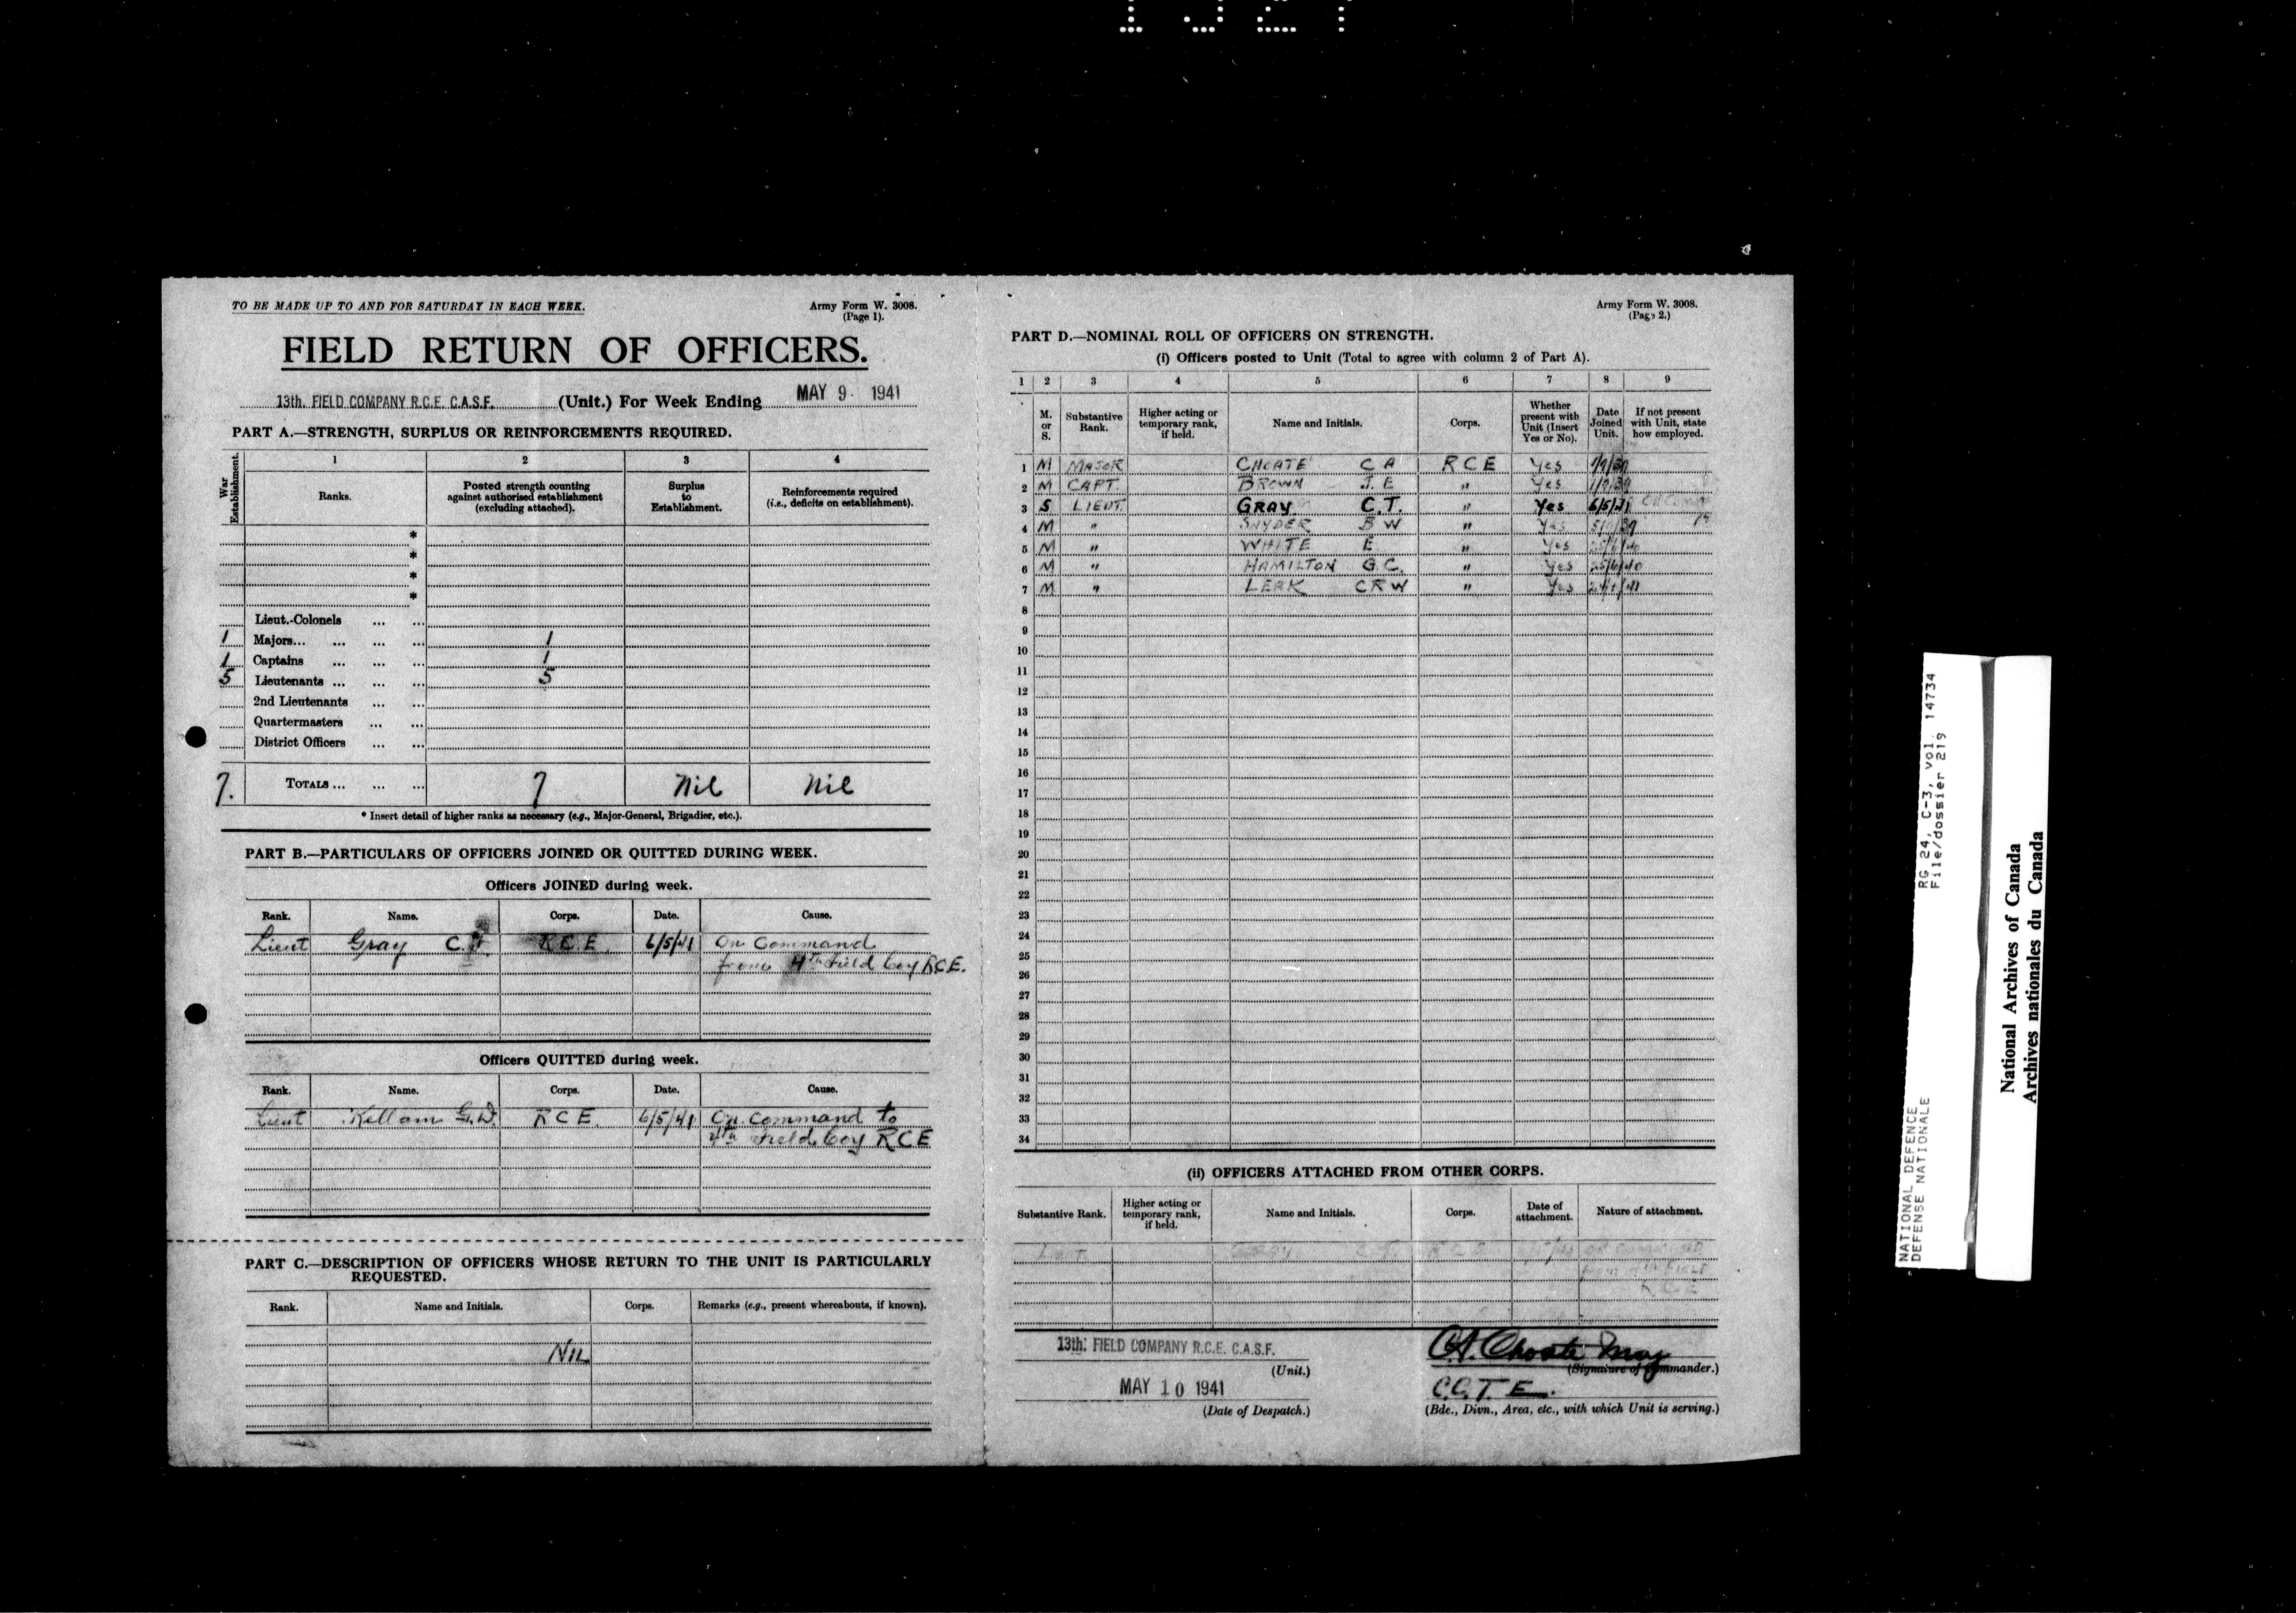 TO BE MADE UP TO AND FOR SATURDAY IN EACH WEEK.
Army Form W. 3008.
(Page 1).
FIELD RETURN OF OFFICERS.
13th. FIELD COMPANY R.C.E. C.A.S.F. (Unit.) For Week Ending MAY 9 1941
PART A.—STRENGTH, SURPLUS OR REINFORCEMENTS REQUIRED.
War Establishment.
1 2 3 4
Ranks.
Posted strength counting against authorised establishment (excluding attached).
Surplus to Establishment.
Reinforcements required (i.e., deficits on establishment).
*
*
*
*
Lieut.-Colonels ... ...
1 Majors... ... ... ... 1
1 Captains ... ... ... 1
5 Lieutenants ... ... ... 5
2nd Lieutenants ... ...
Quartermasters ... ...
District Officers ... ...
7. TOTALS ... ... ... 7 Nil Nil
* Insert detail of higher ranks as necessary (e.g., Major-General, Brigadier, etc.).
PART B.—PARTICULARS OF OFFICERS JOINED OR QUITTED DURING WEEK.
Officers JOINED during week.
Rank. Name. Corps. Date. Cause.
Lieut Gray C.T. R.C.E. 6/5/41 On Command
from 4th Field Coy R.C.E.
Officers QUITTED during week.
Rank. Name. Corps. Date. Cause.
Lieut Kellam G.D. R C E 6/5/41 On Command to
4th Field Coy R C E
PART C.—DESCRIPTION OF OFFICERS WHOSE RETURN TO THE UNIT IS PARTICULARLY
REQUESTED.
Rank. Name and Initials. Corps. Remarks (e.g., present whereabouts, if known).
NIL
Army Form W. 3008.
(Page 2.)
PART D.—NOMINAL ROLL OF OFFICERS ON STRENGTH.
(i) Officers posted to Unit (Total to agree with column 2 of Part A).
1 2 3 4 5 6 7 8 9
M. or S.
Substantive Rank.
Higher acting or temporary rank, if held.
Name and Initials.
Corps.
Whether present with Unit (Insert Yes or No).
Date Joined Unit.
If not present with Unit, state how employed.
1 M MAJOR CHOATE C A R C E Yes
2 M CAPT. BROWN J. E " Yes
3 S LIEUT. GRAY C.T. " Yes 6/5/41
4 M " SNYDER B W " Yes
5 M " WHITE E " Yes
6 M " HAMILTON G.C. " Yes 25/6/40
7 M " LEAK C R W " Yes
8
9
10
11
12
13
14
15
16
17
18
19
20
21
22
23
24
25
26
27
28
29
30
31
32
33
34
(ii) OFFICERS ATTACHED FROM OTHER CORPS.
Substantive Rank.
Higher acting or temporary rank, if held.
Name and Initials.
Corps.
Date of attachment.
Nature of attachment.
13th. FIELD COMPANY R.C.E. C.A.S.F.
(Unit.)
MAY 10 1941
(Date of Despatch.)
C.A. Choate Maj
(Signature of Commander.)
C.C.T.E.
(Bde., Divn., Area, etc., with which Unit is serving.)
NATIONAL DEFENCE RG 24, C-3, vol. 14734
DEFENSE NATIONALE File/dossier 219
National Archives of Canada
Archives nationales du Canada